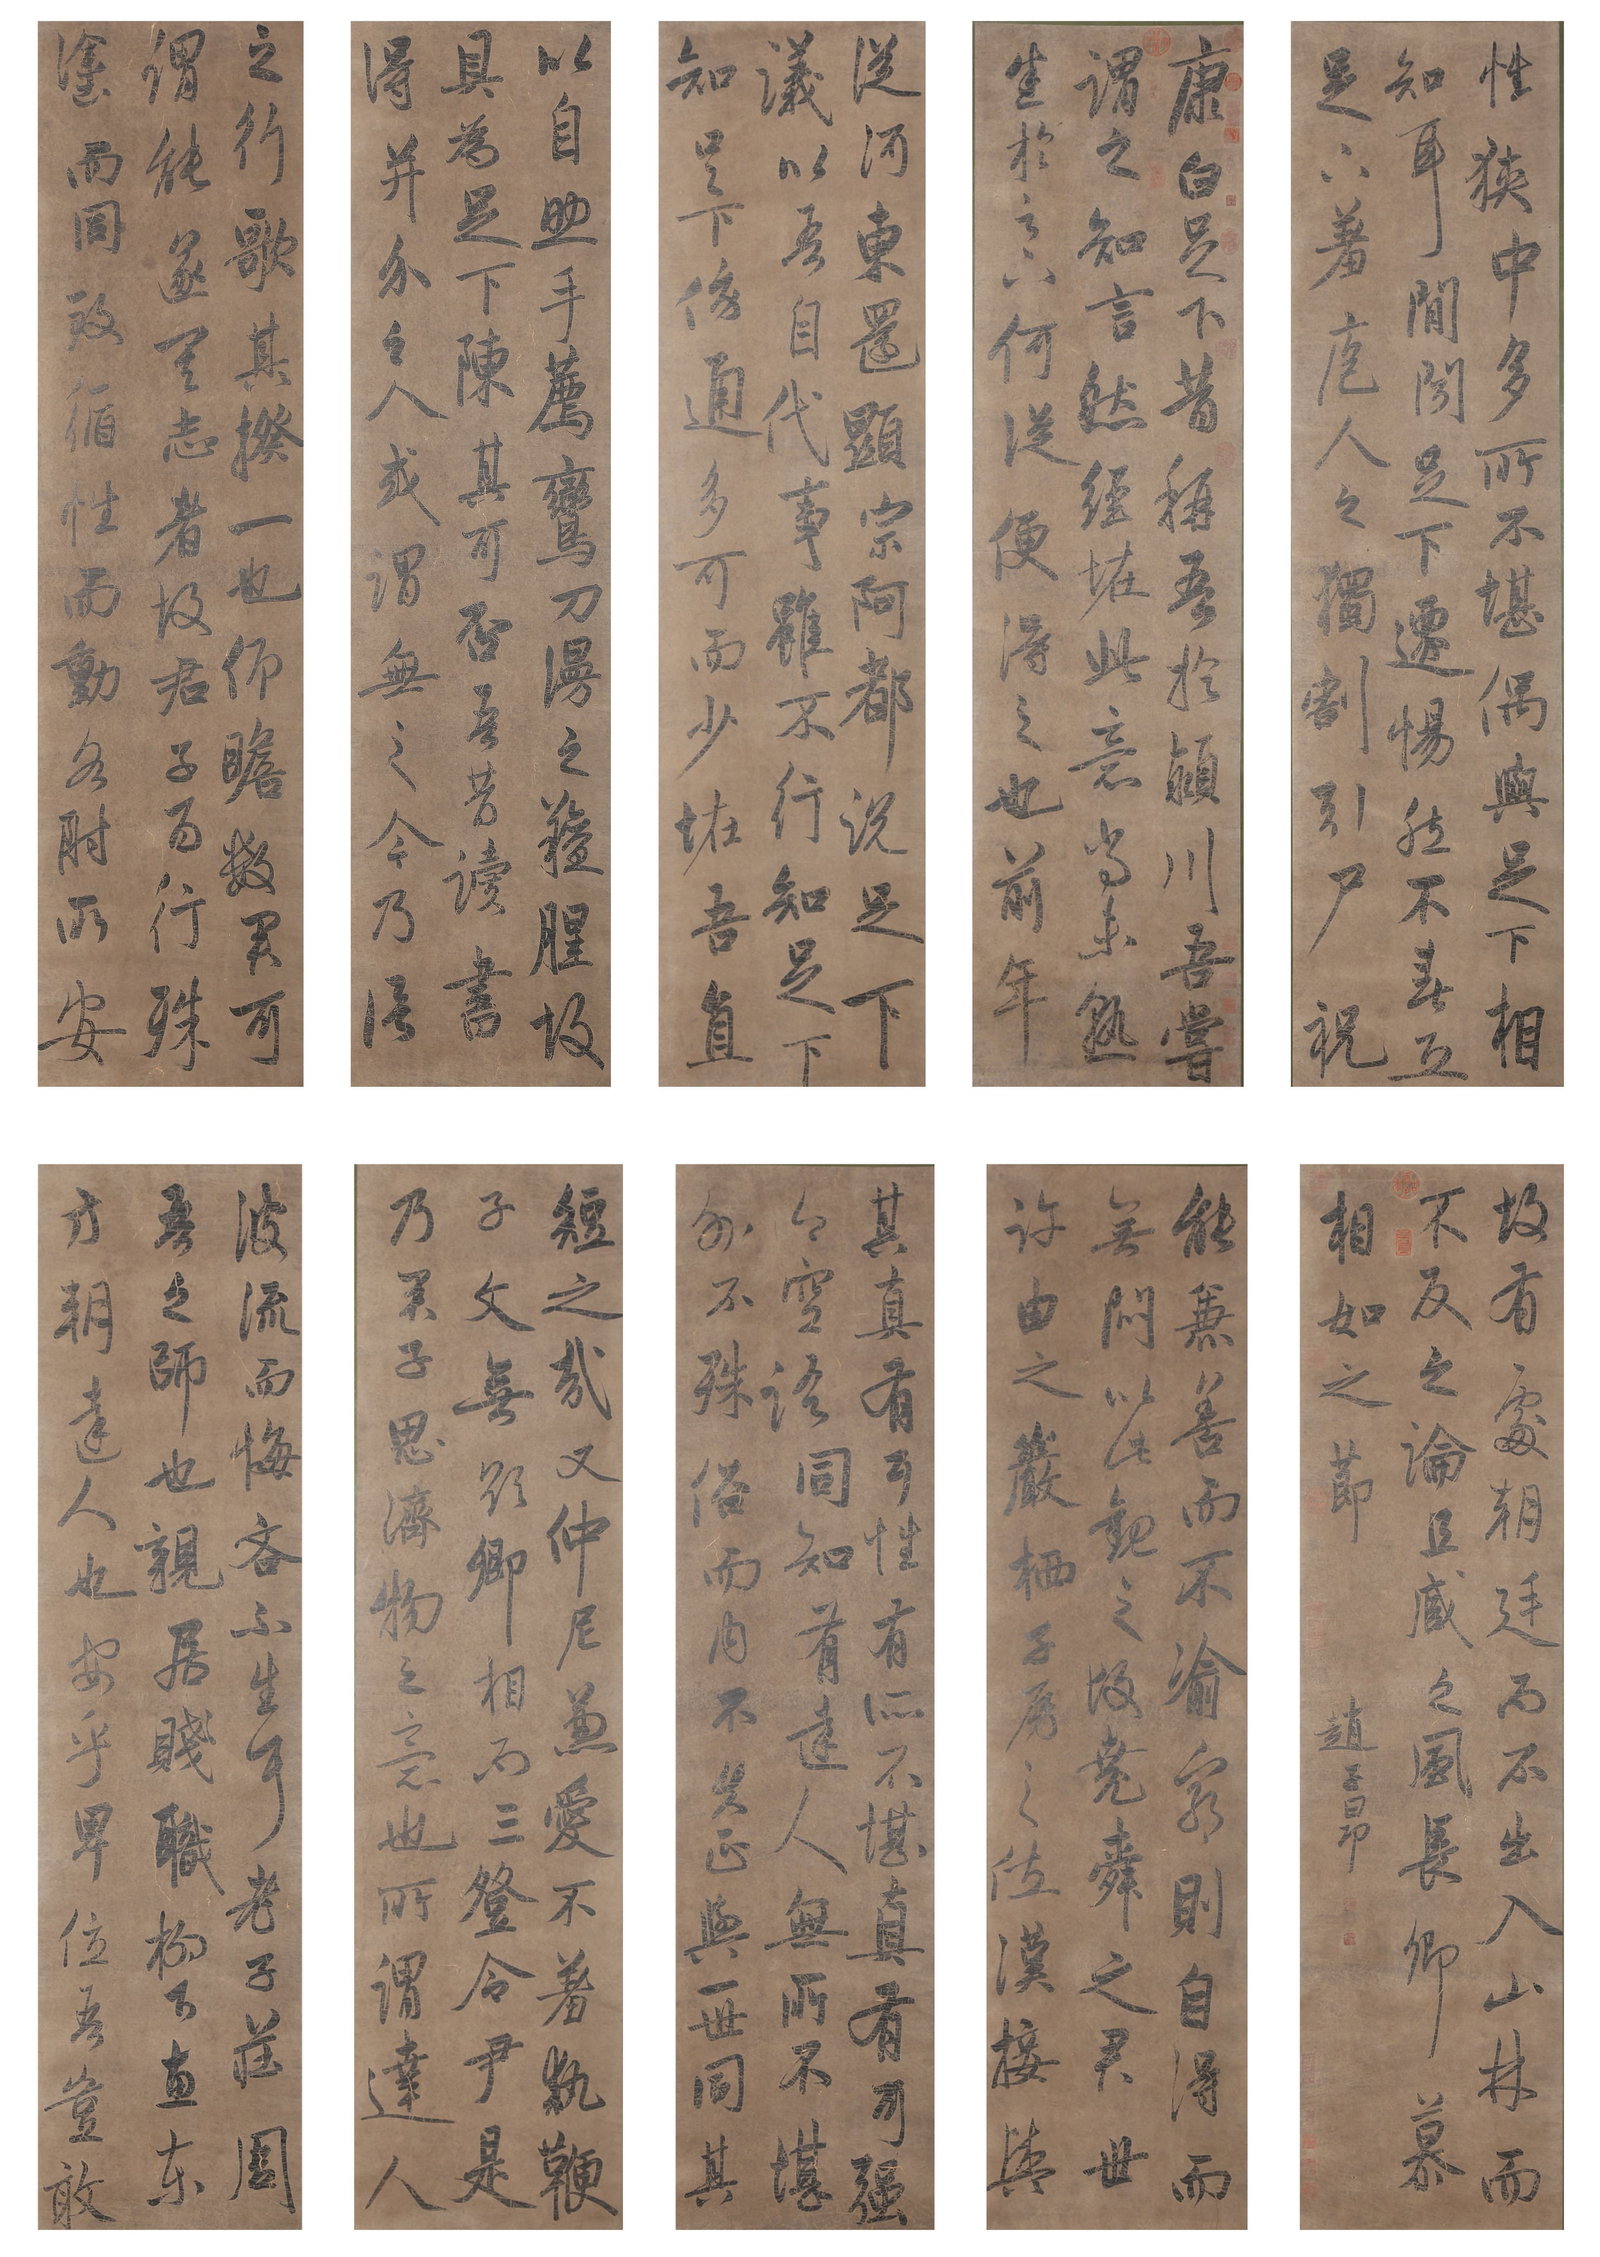 性狹中多所不堪偶與足下相
知耳閒聞足下遷惕然不喜恐
足下羞庖人之獨割引尸祝
康白足下昔稱吾於潁川吾嘗
謂之知言然經怪此意尚未熟
悉於足下何從便得之也前年
從河東還顯宗阿都說足下
議以吾自代事雖不行知足下
知足下傍通多可而少怪吾直
以自助手薦鸞刀漫之羶腥故
具為足下陳其可否吾昔讀書
得并介之人或謂無之今乃信
之行歌其揆一也仰瞻數君可
謂能遂其志者故君子百行殊
塗而同致循性而動各附所安
故有處朝廷而不出入山林而
不反之論且臧之風長卿慕
相如之節
趙子昂
能兼善而不渝窮則自得而
無悶以此觀之故堯舜之君世
許由之巖栖子房之佐漢接輿
其真有耳性有所不堪真有可强
今空語同知有達人無所不堪
外不殊俗而內不失正與一世同其
短之哉又仲尼兼愛不羞執鞭
子文無欲卿相而三登令尹是
乃君子思濟物之意也所謂達人
波流而悔吝不生耳老子莊周
吾之師也親居賤職柳下惠東
方朔達人也安乎卑位吾豈敢